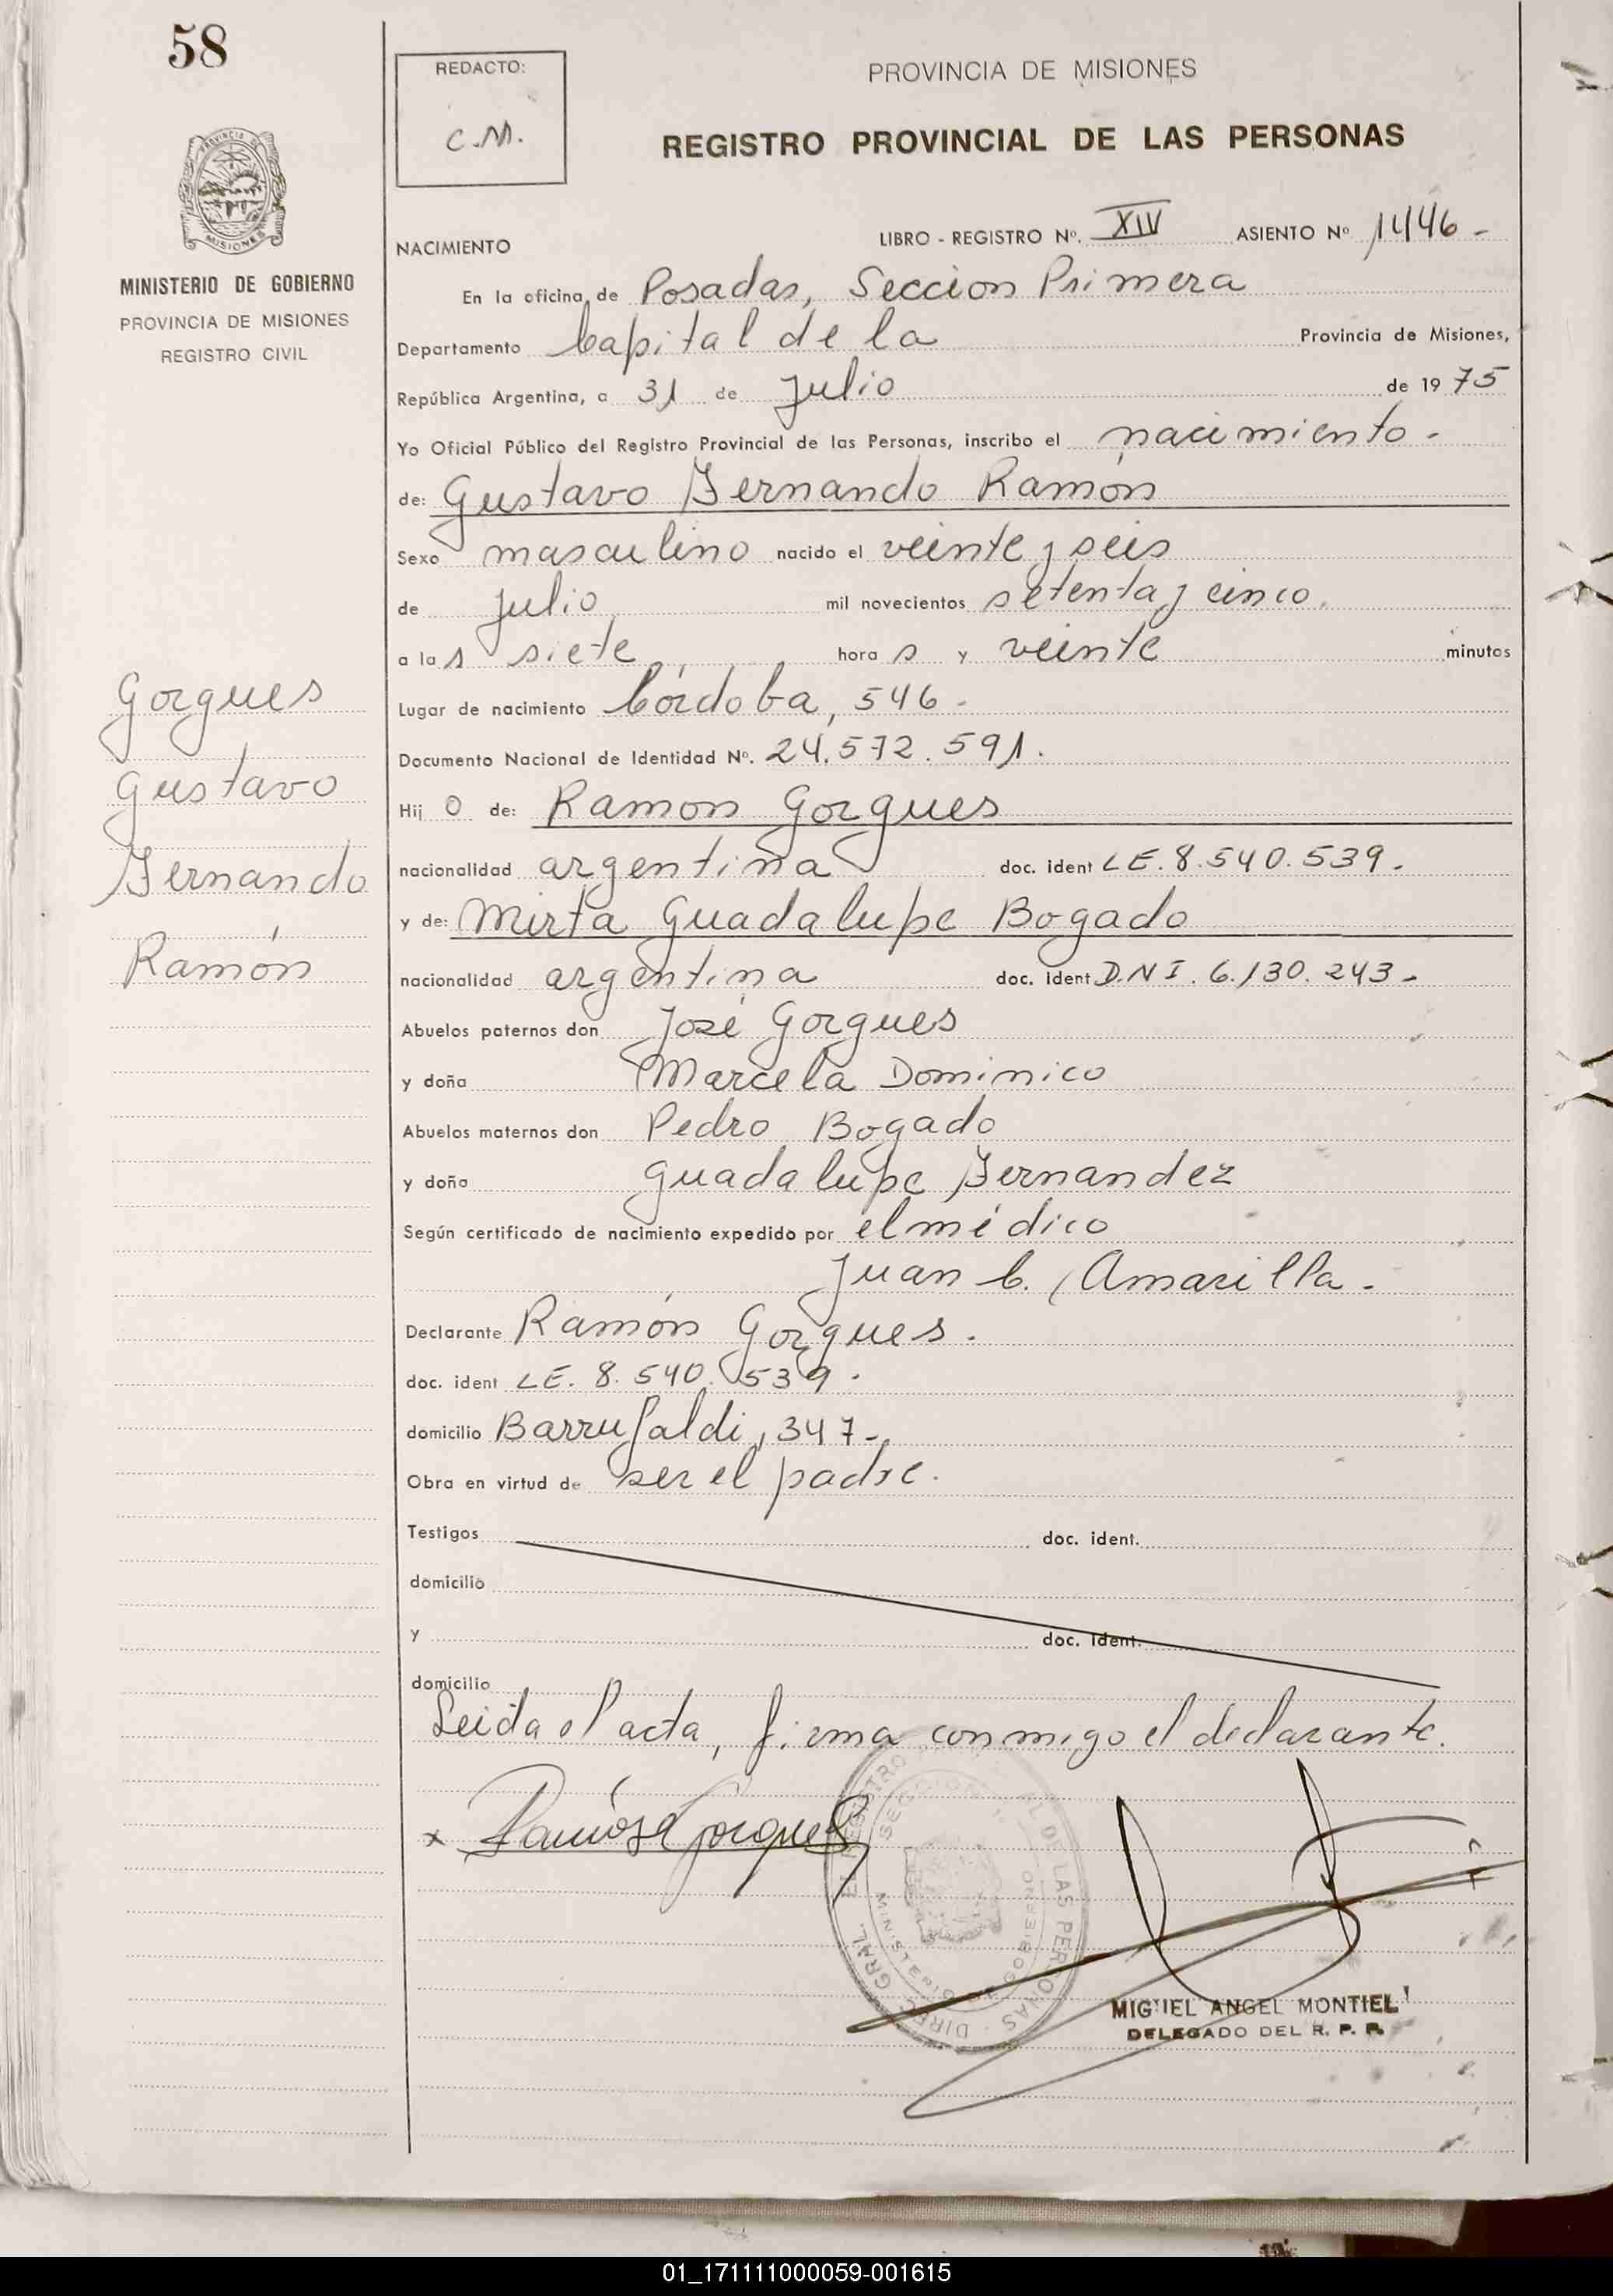 58
REDACTO:
C.M.
PROVINCIA DE MISIONES
REGISTRO PROVINCIAL DE LAS PERSONAS
PROVINCIA DE
MISIONES
MINISTERIO DE GOBIERNO
PROVINCIA DE MISIONES
REGISTRO CIVIL
LIBRO - REGISTRO Nº. XIV ASIENTO Nº 1446 -
NACIMIENTO
En la oficina de Posadas, Seccion Primera
Departamento Capital de la Provincia de Misiones,
República Argentina, a 31 de Julio de 19 75
Yo Oficial Público del Registro Provincial de las Personas, inscribo el nacimiento -
de: Gustavo Fernando Ramón
Sexo masculino nacido el veinte y seis
de Julio mil novecientos setenta y cinco
a las siete horas y veinte minutos
Lugar de nacimiento Córdoba, 546 -
Documento Nacional de Identidad Nº. 24.572.591.
Hijo de: Ramon Gorgues
nacionalidad argentina doc. ident LE. 8.540.539.
y de: Mirta Guadalupe Bogado
nacionalidad argentina doc. ident D.N I. 6.130.243 -
Abuelos paternos don José Gorgues
y doña Marcela Dominico
Abuelos maternos don Pedro Bogado
y doña Guadalupe Fernandez
Según certificado de nacimiento expedido por el médico
Juan C. Amarilla -
Declarante Ramón Gorgues.
doc. ident LE. 8.540.539.
domicilio Barrufaldi, 347 -
Obra en virtud de ser el padre.
Testigos doc. ident.
domicilio
y doc. ident.
domicilio
Leida el acta, firma conmigo el declarante.
x Ramón Gorgues
DIREC. GRAL. REGISTRO DE LAS PERSONAS
SECCION 1
MINISTERIO DE GOBIERNO
MIGUEL ANGEL MONTIEL
DELEGADO DEL R. P. P.
Gorgues
Gustavo
Fernando
Ramón
01_171111000059-001615